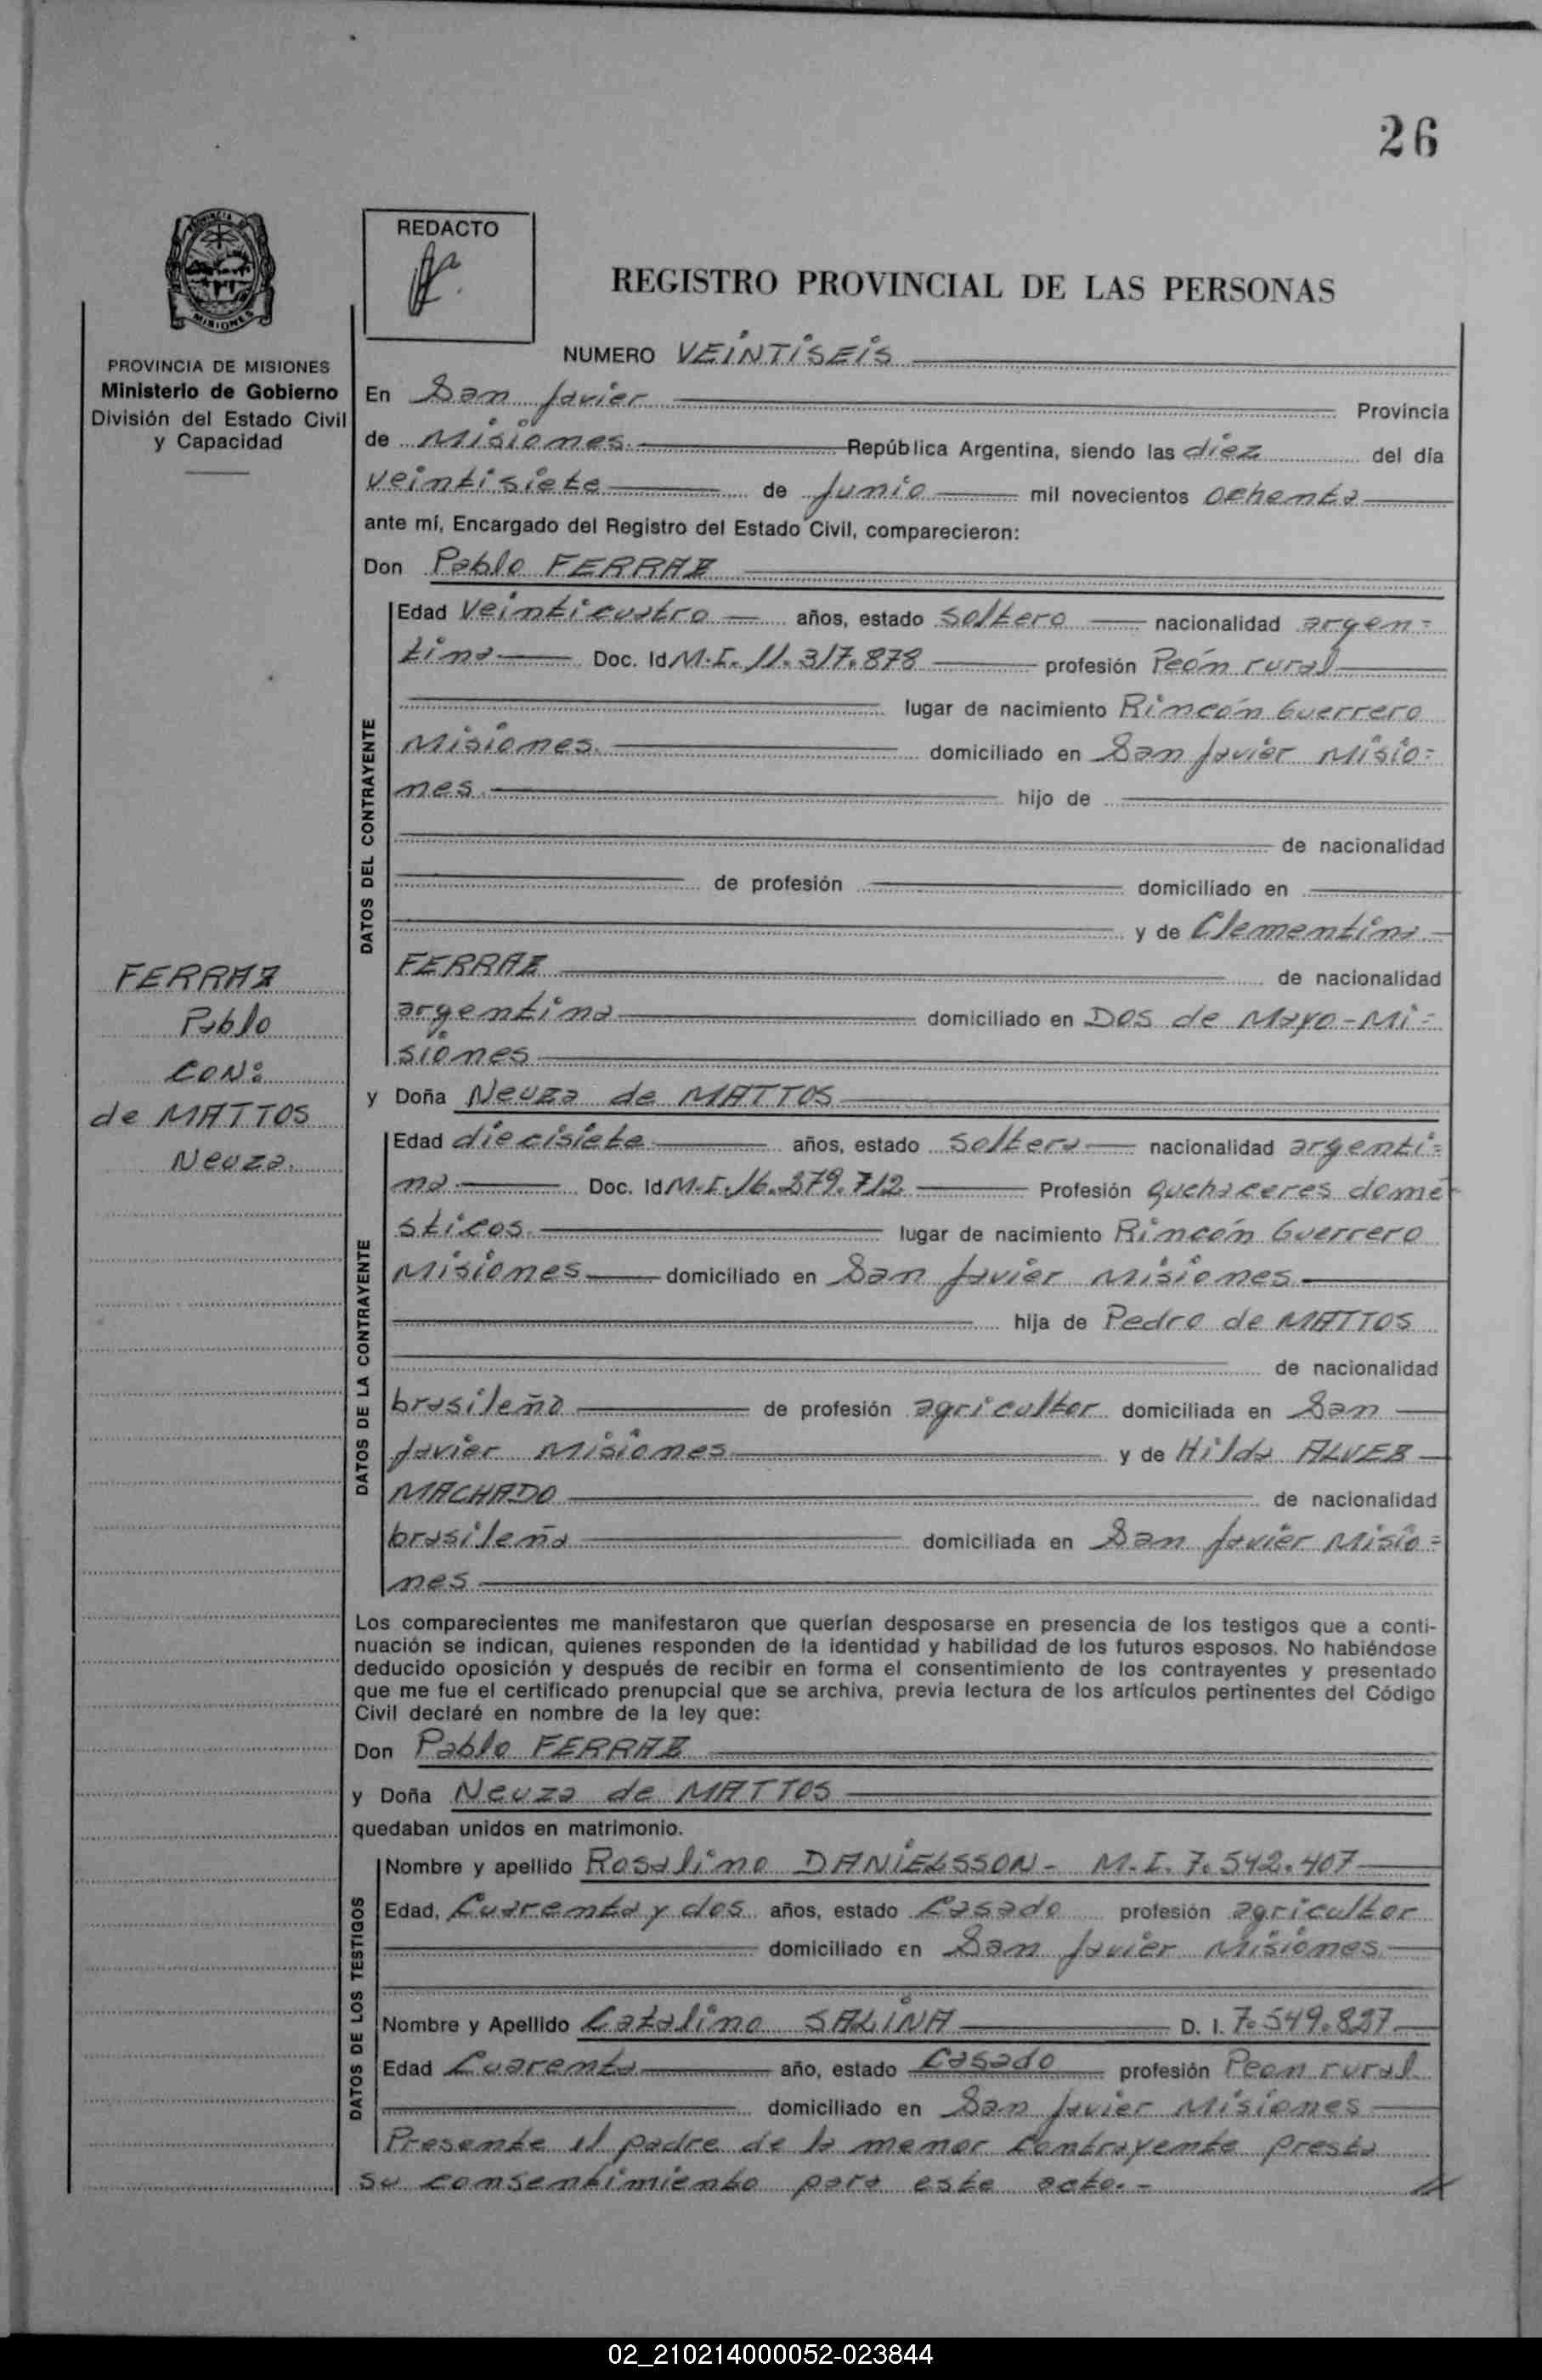 26
REDACTO
REGISTRO PROVINCIAL DE LAS PERSONAS
PROVINCIA DE MISIONES
Ministerio de Gobierno
División del Estado Civil
y Capacidad
NUMERO VEINTISEIS
En San Javier Provincia
de Misiones República Argentina, siendo las diez del día
veintisiete de Junio mil novecientos ochenta
ante mí, Encargado del Registro del Estado Civil, comparecieron:
Don Pablo FERRAZ
DATOS DEL CONTRAYENTE
Edad Veinticuatro años, estado Soltero nacionalidad argen=
tina Doc. Id M.I. 11.317.878 profesión Peón rural
lugar de nacimiento Rincón Guerrero
Misiones domiciliado en San Javier Misio=
nes hijo de
de nacionalidad
de profesión domiciliado en
y de Clementina
FERRAZ de nacionalidad
argentina domiciliado en Dos de Mayo-Mi=
siones
FERRAZ
Pablo
CON:
de MATTOS
Neuza.
y Doña Neuza de MATTOS
DATOS DE LA CONTRAYENTE
Edad diecisiete años, estado Soltera nacionalidad argenti=
na Doc. Id M.I. 16.379.712 Profesión quehaceres domé
sticos lugar de nacimiento Rincón Guerrero
Misiones domiciliado en San Javier Misiones
hija de Pedro de MATTOS
de nacionalidad
brasileña de profesión agricultor domiciliada en San
Javier Misiones y de Hilda ALVES
MACHADO de nacionalidad
brasileña domiciliada en San Javier Misio=
nes
Los comparecientes me manifestaron que querían desposarse en presencia de los testigos que a conti-
nuación se indican, quienes responden de la identidad y habilidad de los futuros esposos. No habiéndose
deducido oposición y después de recibir en forma el consentimiento de los contrayentes y presentado
que me fue el certificado prenupcial que se archiva, previa lectura de los artículos pertinentes del Código
Civil declaré en nombre de la ley que:
Don Pablo FERRAZ
y Doña Neuza de MATTOS
quedaban unidos en matrimonio.
DATOS DE LOS TESTIGOS
Nombre y apellido Rosalino DANIELSSON- M.I. 7.542.407
Edad, Cuarenta y dos años, estado Casado profesión agricultor
domiciliado en San Javier Misiones
Nombre y Apellido Catalino SALINA D. I. 7.549.827
Edad Cuarenta año, estado Casado profesión Peon rural
domiciliado en San Javier Misiones
Presente el padre de la menor contrayente presta
su consentimiento para este acto.-
02_210214000052-023844